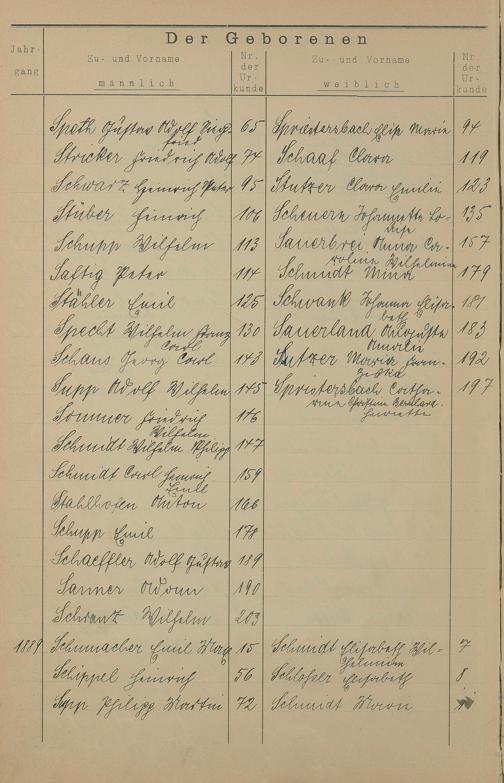 Der Geborenen
Jahr-
gang
Zu- und Vorname
männlich
Nr.
der
Ur-
kunde
Zu- und Vorname
weiblich
Nr.
der
Ur-
kunde
Spath Gustav Adolf Sieg-
fried 65 Spriestersbach Elise Marie 94
Stricker Friedrich Adolf 74 Schaaf Clara 119
Schwarz Heinrich Peter 95 Stutzer Clara Emilie 123
Stüber Heinrich 106 Scheuern Johannette Lo-
uise 135
Schupp Wilhelm 113 Sauerbrei Anna Ca-
roline Wilhelmine 157
Saftig Peter 114 Schmidt Mina 179
Stähler Emil 125 Schwank Johanna Elisa-
beth 181
Specht Wilhelm Franz
Carl 130 Sauerland Auguste
Amalie 183
Schaus Georg Carl 143 Stutzer Maria Fran-
ziska 192
Supp Adolf Wilhelm 145 Spriestersbach Catha-
rine Christine
Henriette 197
Sommer Friedrich
Wilhelm 146
Schmidt Wilhelm Philipp 147
Schmidt Carl Heinrich
Emil 159
Stahlhofen Anton 166
Schupp Emil 178
Schaeffler Adolf Gustav 189
Sanner Adam 190
Schwanz Wilhelm 203
1889 Schumacher Emil 15 Schmidt Elisabeth Wil-
helmine 7
Schippel Heinrich 56 Schlosser Elisabeth 8
Sapp Philipp Martin 72 Schmidt